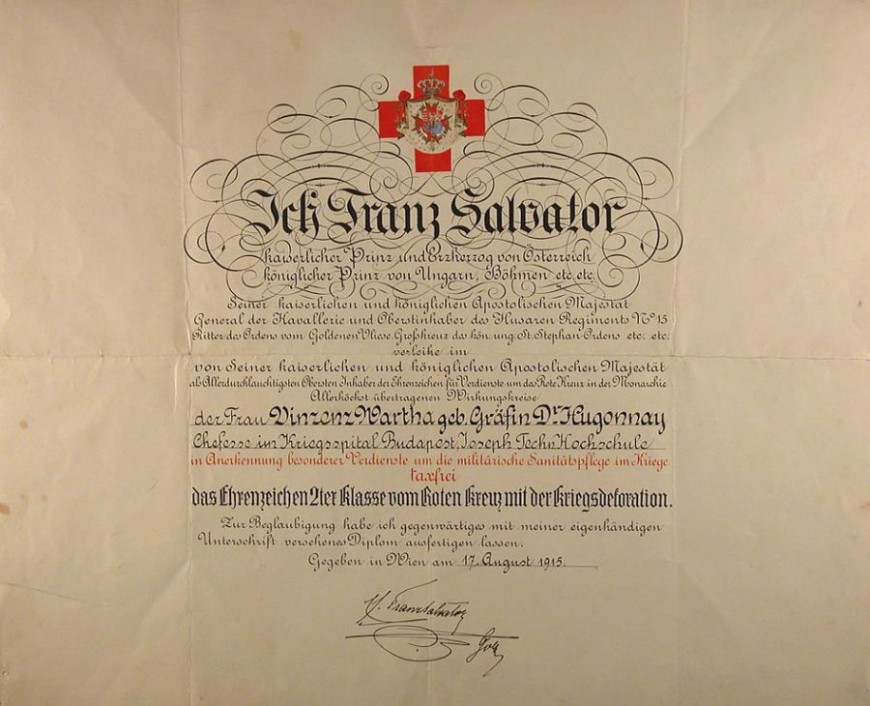 Ich Franz Salvator
kaiserlicher Prinz und Erzherzog von Österreich
königlicher Prinz von Ungarn, Böhmen etc. etc.
Seiner kaiserlichen und königlichen Apostolischen Majestät
General der Kavallerie und Oberstinhaber des Husaren Regiments No 15
Ritter des Ordens vom Goldenen Vliese, Großkreuz des kön. ung. St. Stephan-Ordens etc. etc.
verleihe im
von Seiner kaiserlichen und königlichen Apostolischen Majestät
als Allerdurchlauchtigsten Obersten Inhaber der Ehrenzeichen für Verdienste um das Rote Kreuz in der Monarchie
Allerhöchst übertragenen Wirkungskreise
der Frau Vinzenz Wartha geb. Gräfin Dr. Hugonnay
Chefesse im Kriegsspital Budapest, Joseph Techn Hochschule
in Anerkennung besonderer Verdienste um die militärische Sanitätspflege im Kriege
taxfrei
das Ehrenzeichen 2ter Klasse vom Roten Kreuz mit der Kriegsdekoration.
Zur Beglaubigung habe ich gegenwärtiges mit meiner eigenhändigen
Unterschrift versehenes Diplom ausfertigen lassen.
Gegeben in Wien am 17. August 1915.
Franz Salvator